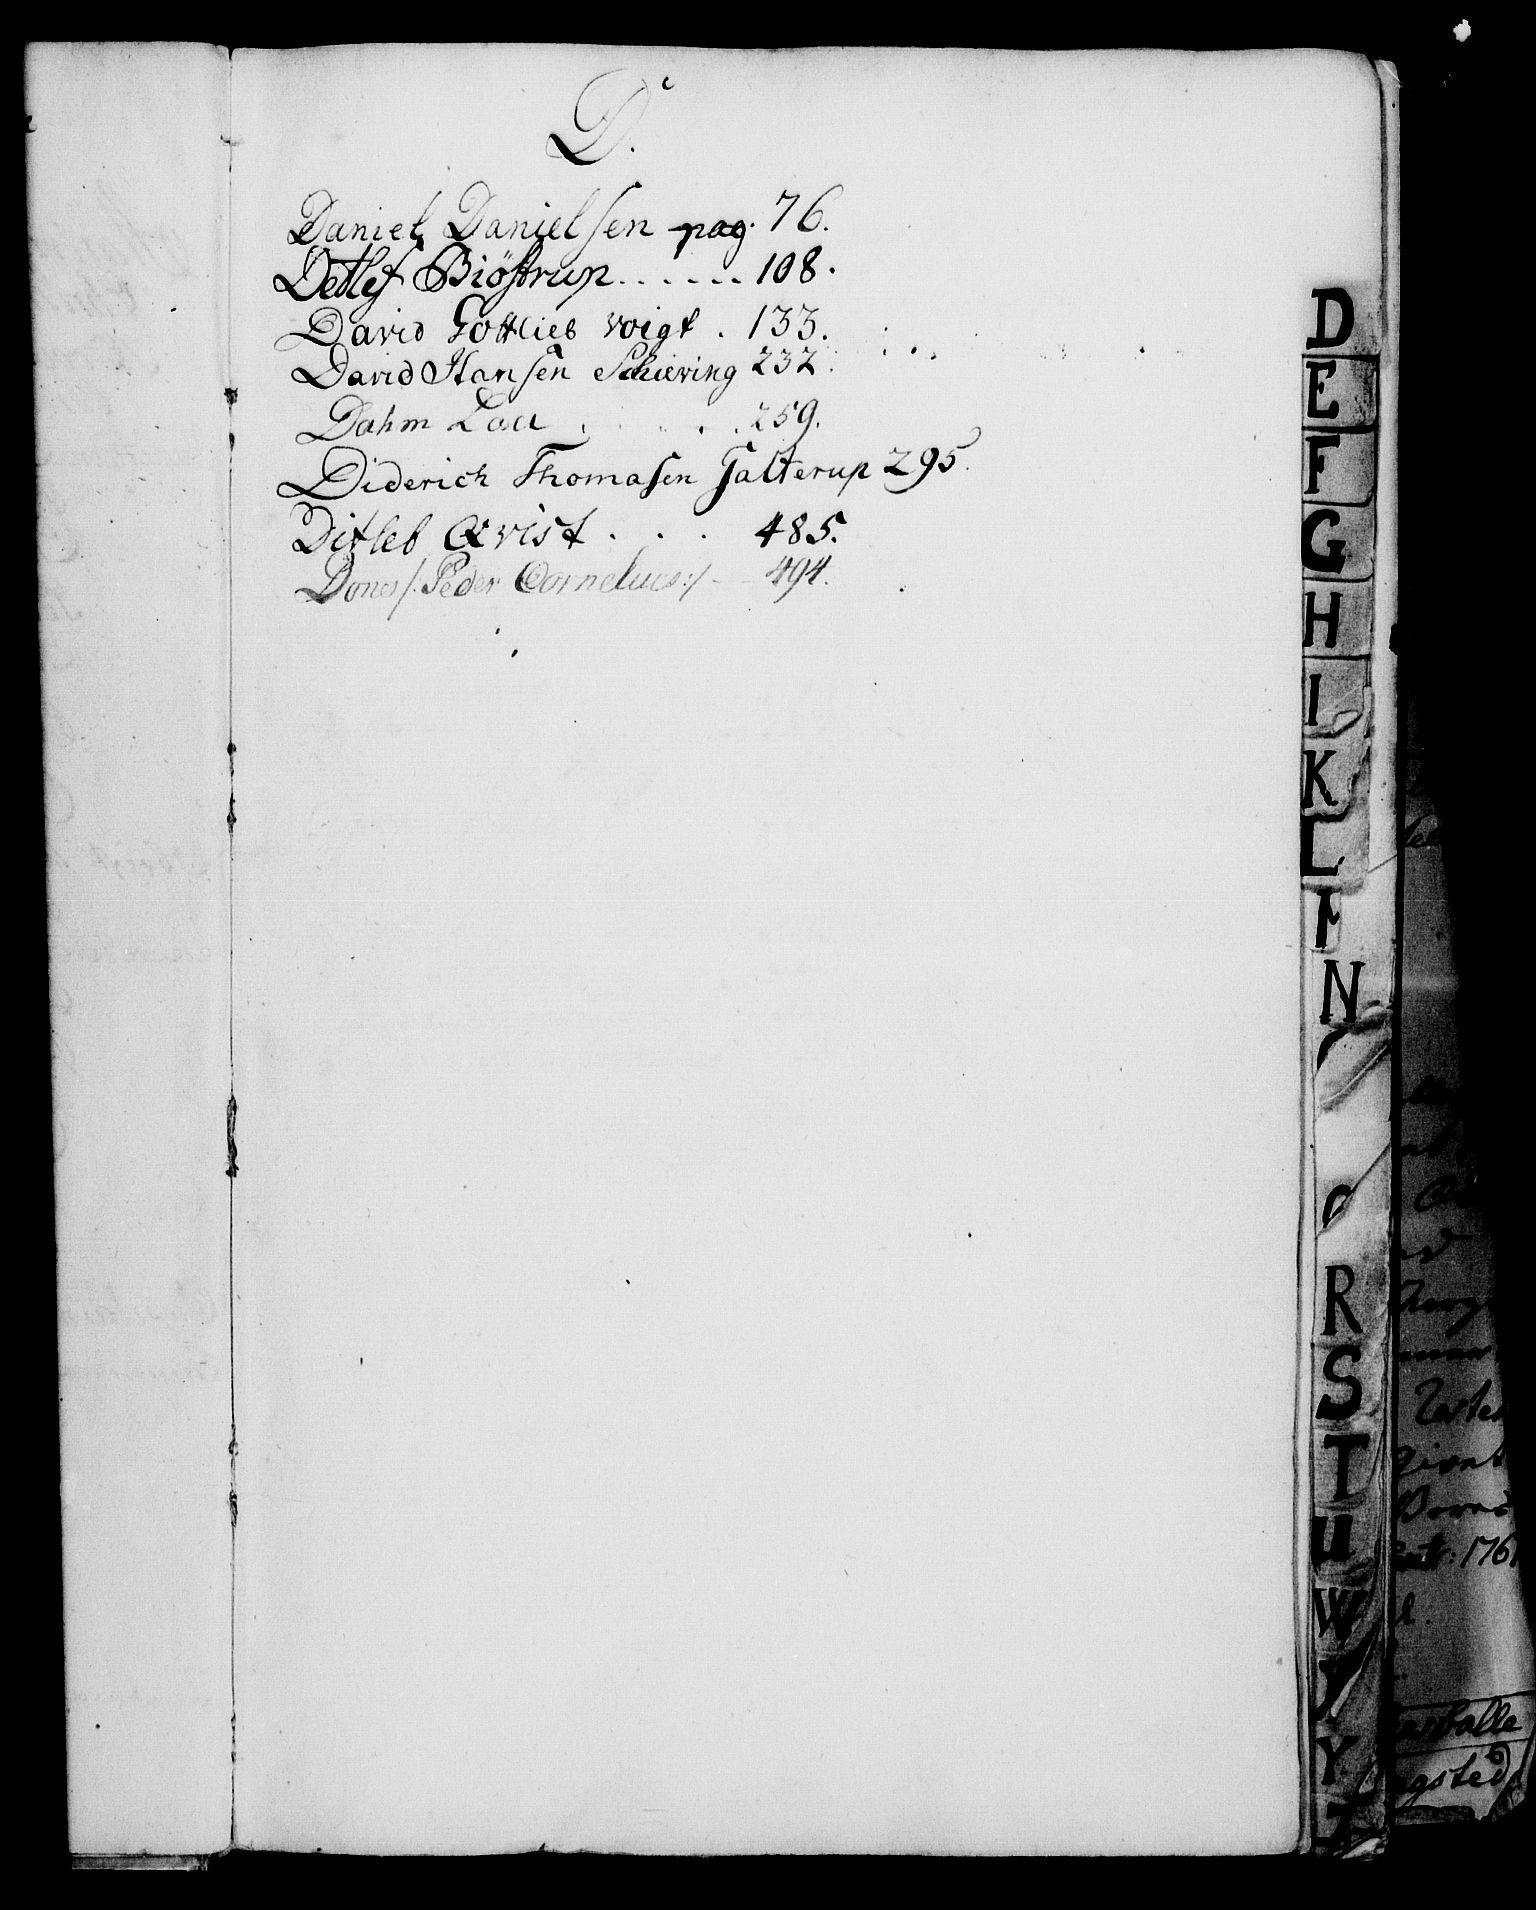 D.
Daniel Danielsen pag. 76.
Detlef Biöstrup...... 108.
David Gottlieb Voigt . 133.
David Hansen Schiering 232.
Dahm Laa . . . . 259.
Diderich Thomasen Galterup 295.
Ditleb Qvist . . . 485.
Dons /: Peder Cornelius :/ - - 494.
D
E
F
G
H
I
K
L
N
R
S
T
U
W
Y